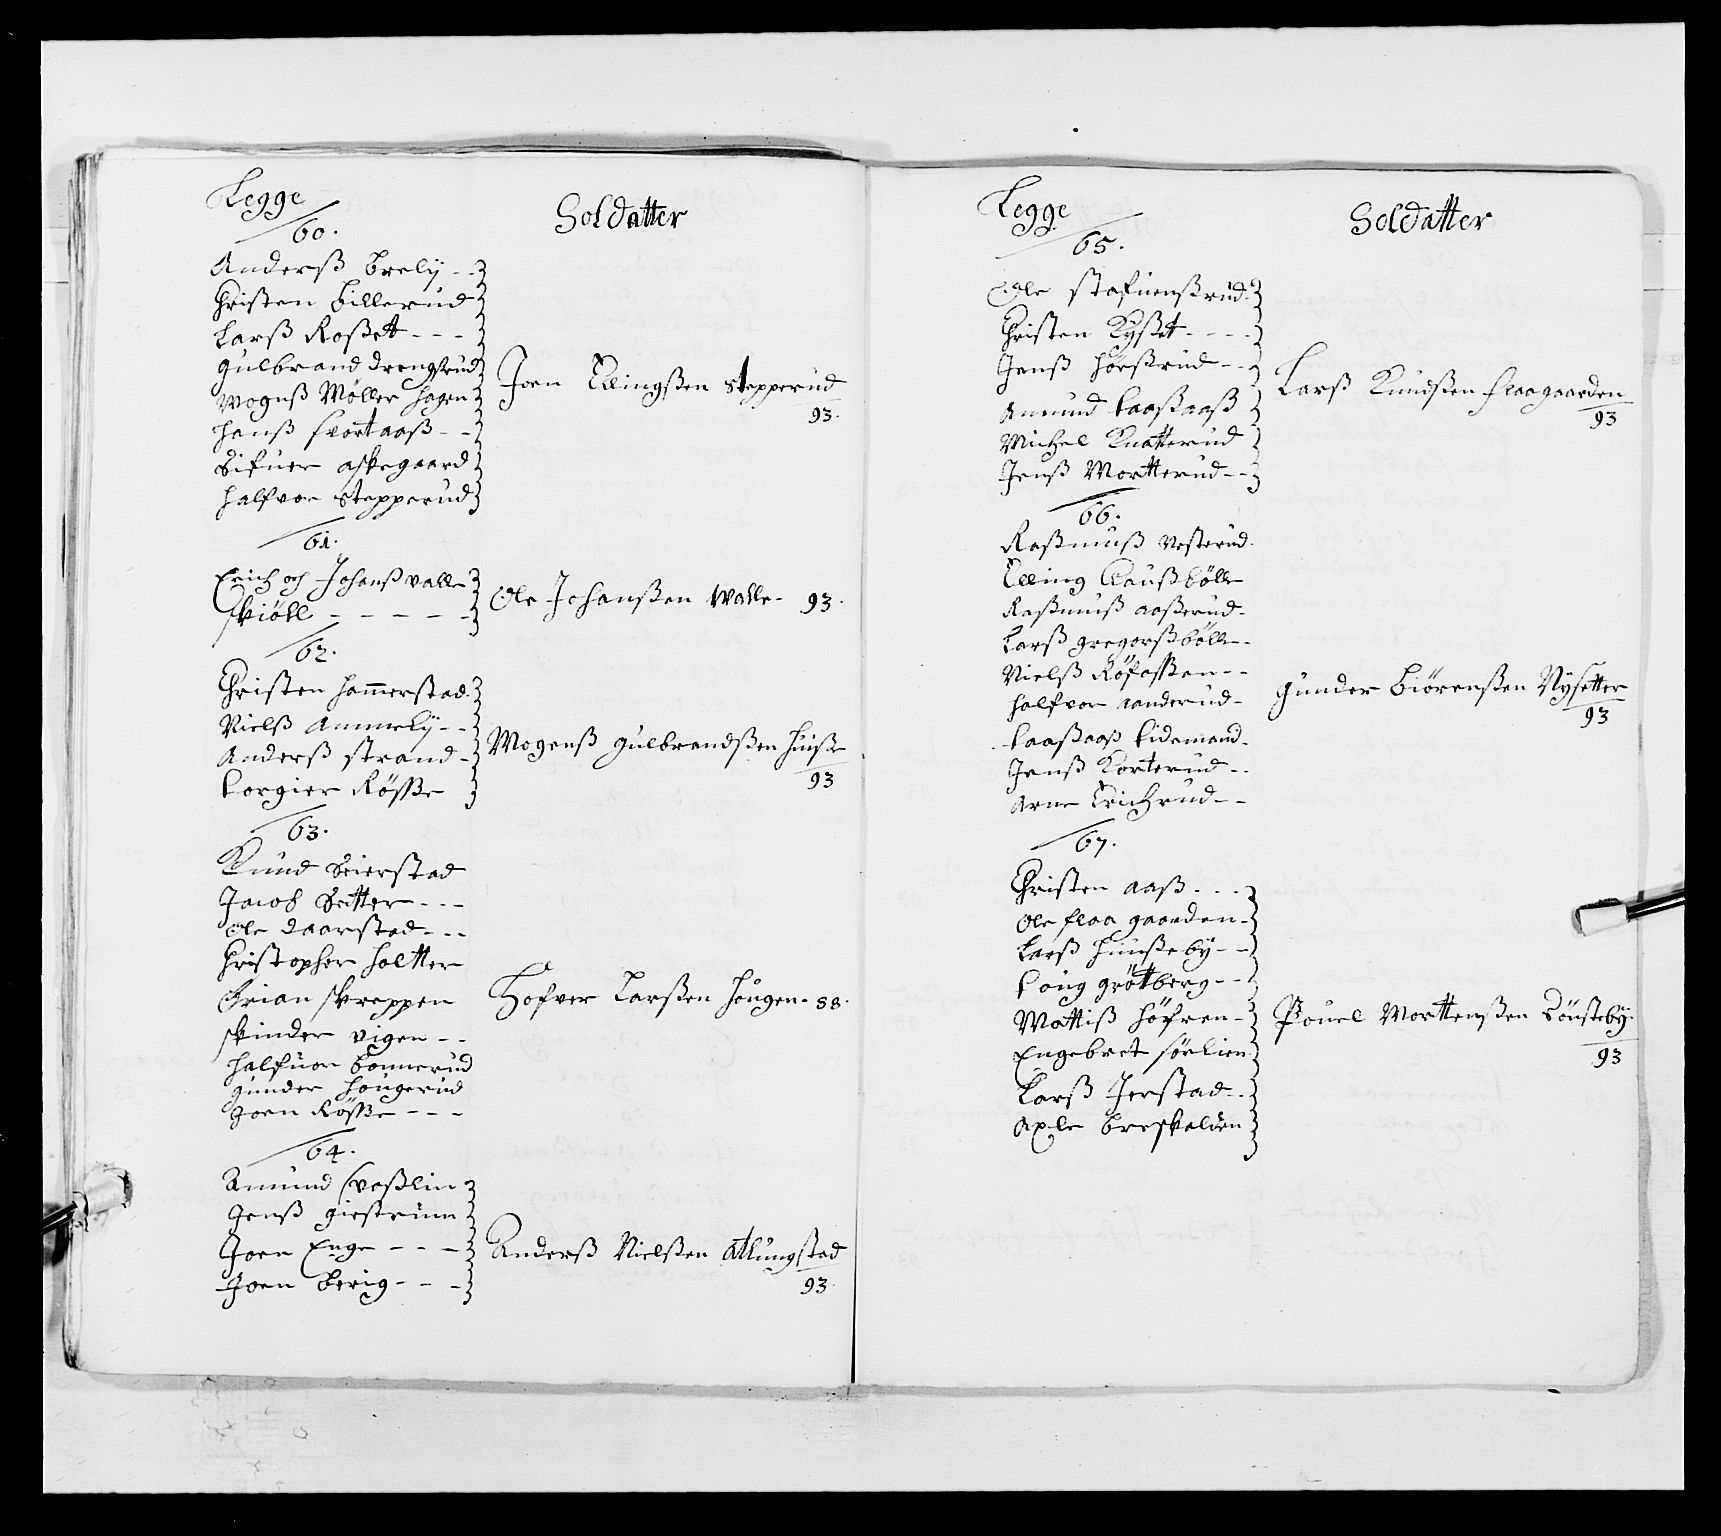 Legge
Soldatter
60.
Anderß Brelÿ
Christen Billerud
Larß Roßet
Gulbrand Drengsrud
Mogenß Møller Hagen
Hanß flortaaß
Sifuer Askegaard
Halfvor Stepperud
Joen Ellingßen Stepperud
93.
61.
Erich och Johanß valle
Skiöll
Ole Johanßen Walle 93.
62.
Christen Hammerstad
Nielß Ammelÿ
Anderß Strand
Torgier Rößße
Mogenß Gulbrandßen Huuße
93
63.
Knud Seierstad
Jacob Setter
Ole Daarstad
Christopher Holtter
Brian Skreppen
Skinder vigen
Halfuor Bonnerud
Gunder Hougerud
Joen Rößße
Hofver Larßen Hougen 88.
64.
Amund
Jenß Giestrum
Joen Enge
Joen Berig
Anderß Nielßen Atlungstad
93.
Legge
Soldatter
65.
Ole Stafuenßrud
Christen Kÿßet
Jenß Horßrud
Amund Laaßaaß
Michel Knatterud
Jenß Mortterud
Larß Knudßen flaagaarden
93
66.
Raßmuß Vesterud
Elling Clausbölle
Raßmuß aaßerud
Larß Gregorßbölle
Nielß Röfoßen
Halfvor randerud
Laaßaaß Tidemand
Jenß Korterud
Arne Erichrud
Gunder Biörenßen Nÿsetter
93
67.
Christen aaß
Ole flaa gaarden
Larß Huußebÿ
Loug Gröttberg
Mattiß Höfren
Engebret sörlien
Larß Jerstad
Axle Breskalien
Pouel Morttenßen Sönstebÿ.
93